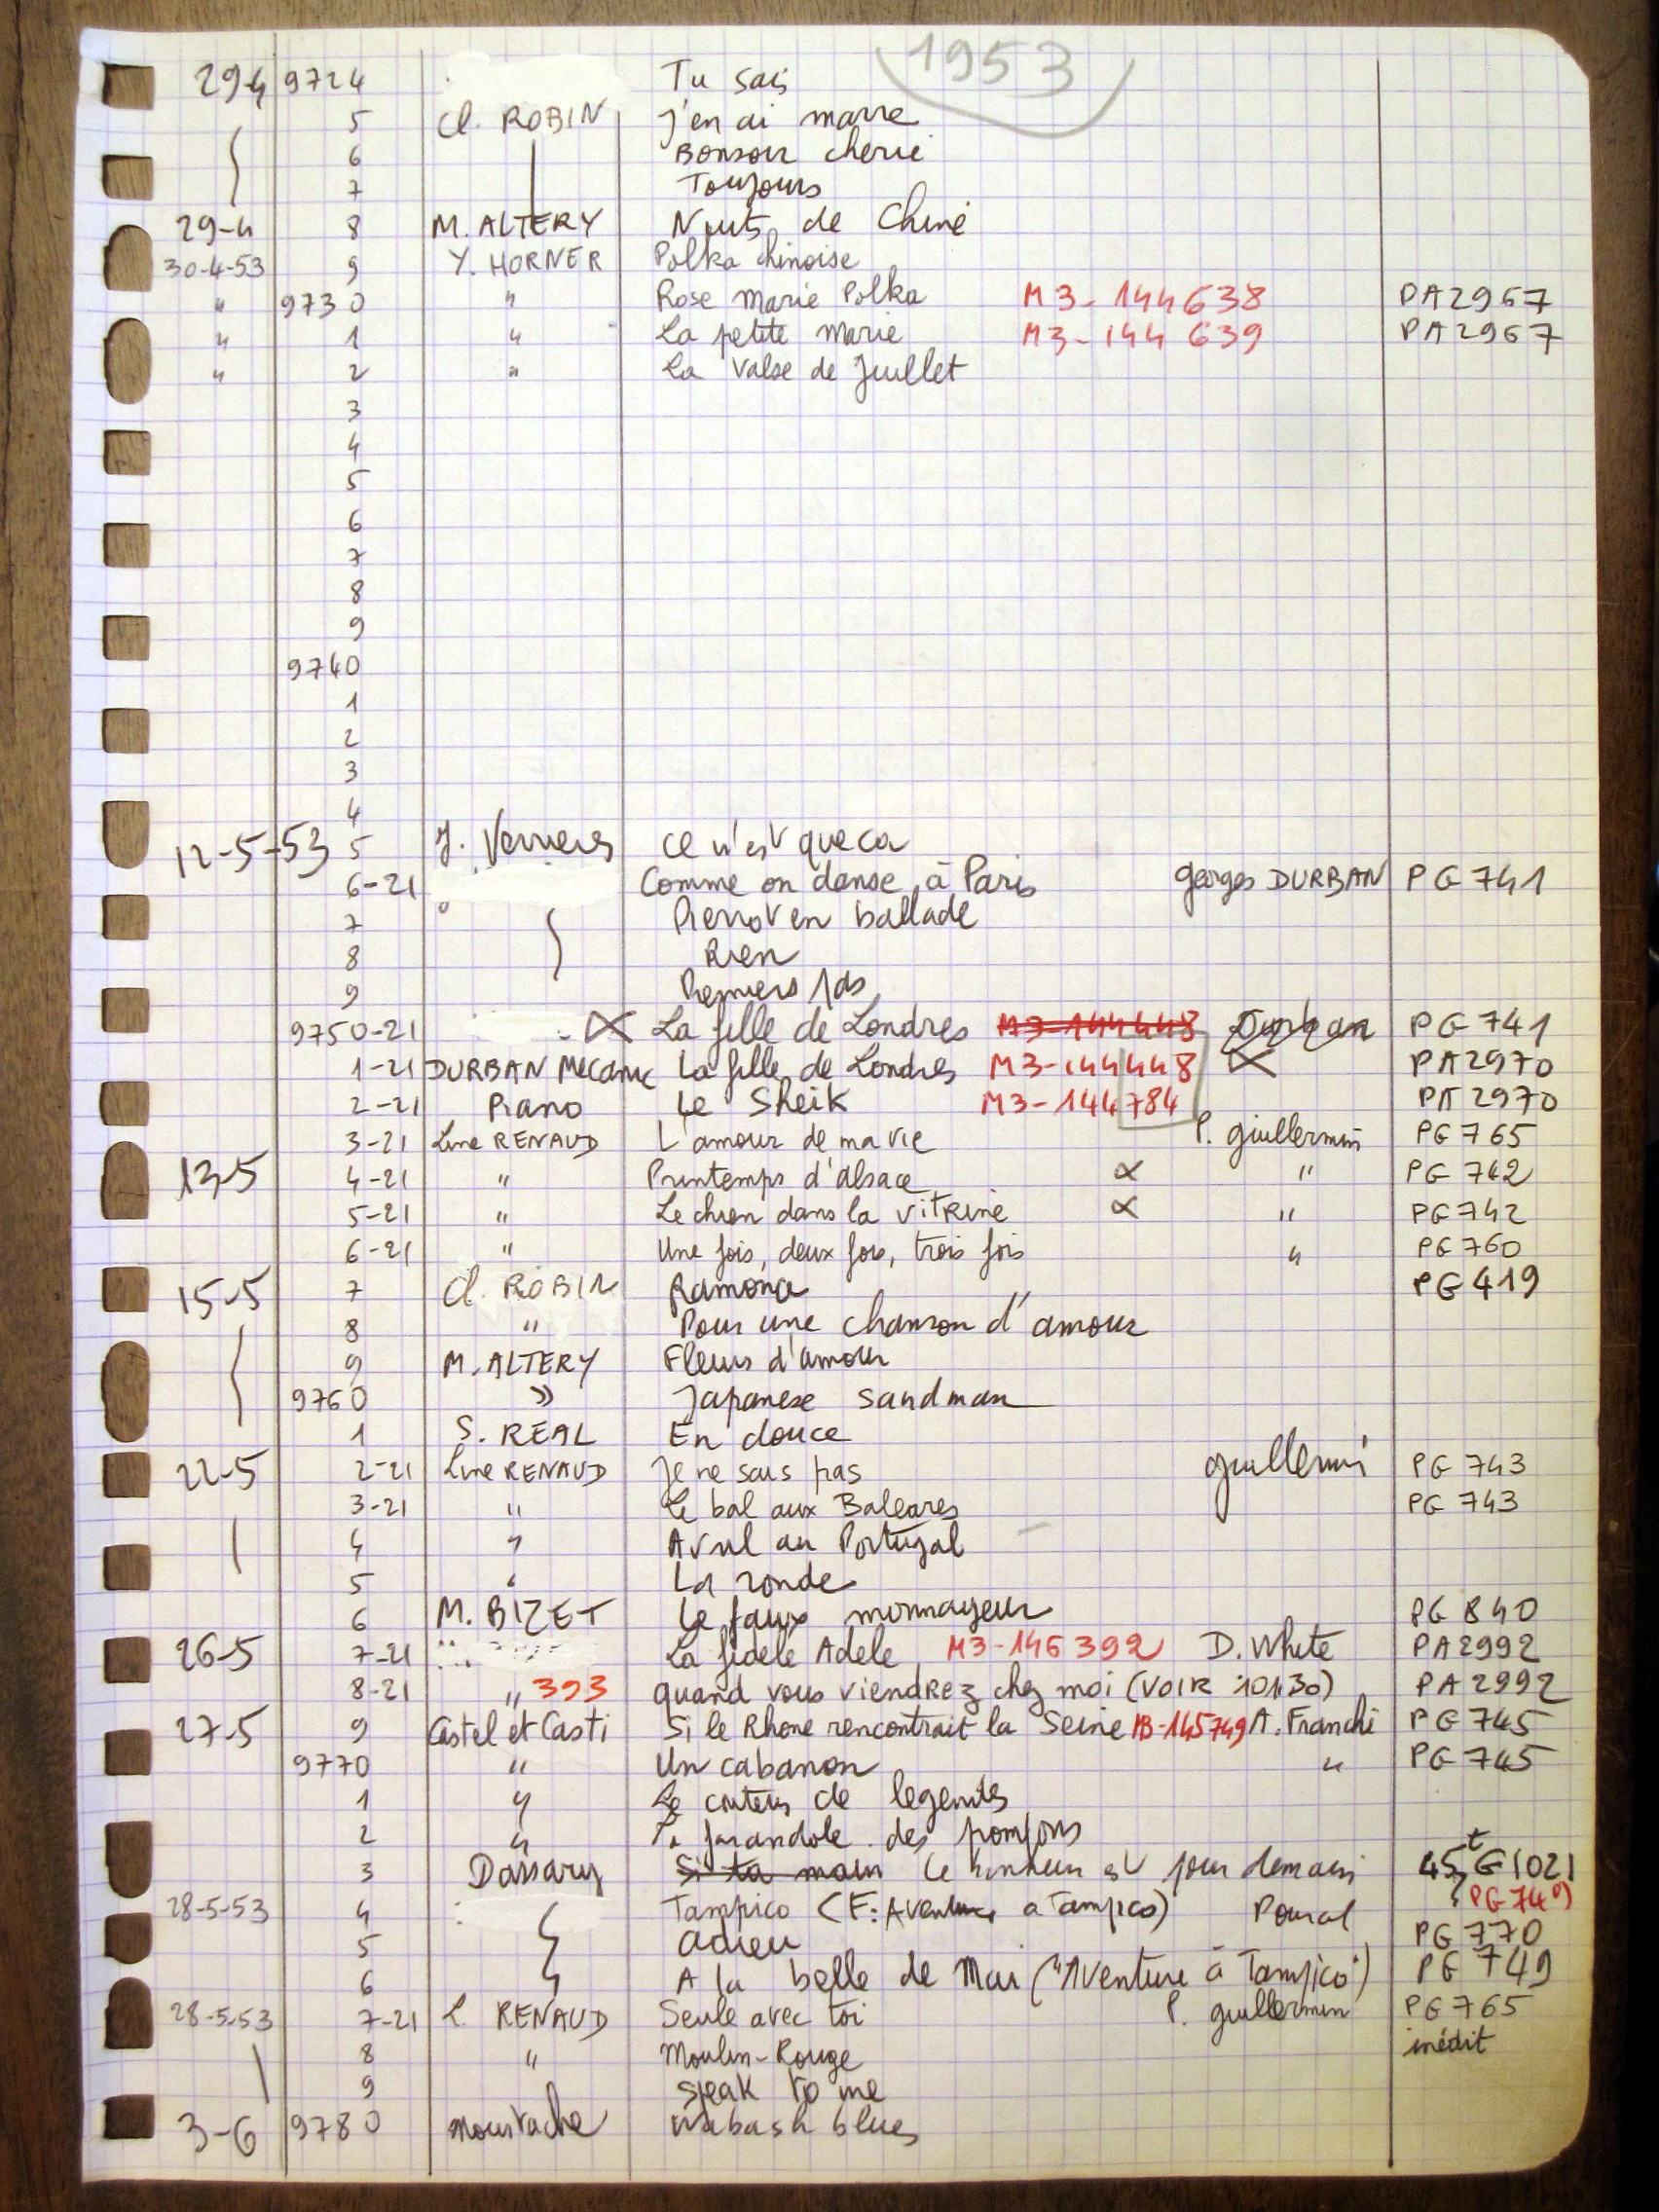 1953
29-4 9724 Tu sais
5 Cl. ROBIN J'en ai marre
6 Bonsoir cherie
7 Toujours
29-4 8 M. ALTERY Nuits de Chine
30-4-53 9 Y. HORNER Polka chinoise
" 9730 " Rose Marie Polka M3-144638 PA2967
" 1 " La petite Marie M3-144639 PA2967
" 2 " La Valse de Juillet
3
4
5
6
7
8
9
9740
1
2
3
4
12-5-53 5 J. Verrieres Ce n'est que ca
6-21 Comme on danse à Paris Georges DURBAN PG741
7 Pierrot en ballade
8 Rien
9 Premiers pas
9750-21 La fille de Londres M3-144448 Durban PG741
1-21 DURBAN Mecanic La fille de Londres M3-144448 PA2970
2-21 Piano Le Sheik M3-144784 PA2970
3-21 Line RENAUD L'amour de ma vie P. guillermin PG765
13-5 4-21 " Printemps d'alsace " PG742
5-21 " Le chien dans la vitrine " PG742
6-21 " Une fois, deux fois, trois fois " PG760
15-5 7 Cl. ROBIN Ramona PG419
8 " Pour une chanson d'amour
9 M. ALTERY Fleurs d'amour
9760 " Japanese sandman
1 S. REAL En douce
22-5 2-21 Line RENAUD Je ne sais pas guillermin PG743
3-21 " Le bal aux Baleares PG743
4 " Avril au Portugal
5 " La ronde
6 M. BIZET Le faux monnayeur PG840
26-5 7-21 La fidele Adele M3-146392 D. White PA2992
8-21 " 393 quand vous viendrez chez moi (VOIR 10130) PA2992
27-5 9 Castel et Casti Si le Rhone rencontrait la Seine M3-145749 A. Franchi PG745
9770 " Un cabanon " PG745
1 " Le conteur de legendes
2 " La farandole des pompons
3 Dassary Si ta main Le bonheur est pour demain 45t G1021
28-5-53 4 Tampico (F: Aventure a Tampico) Pourcel PG749
5 adieu PG770
6 A la belle de Mai ("Aventure à Tampico") PG749
28-5-53 7-21 L. RENAUD Seule avec toi P. guillermin PG765
8 " Moulin-Rouge inédit
9 Speak to me
3-6 9780 Moustache Wabash blues